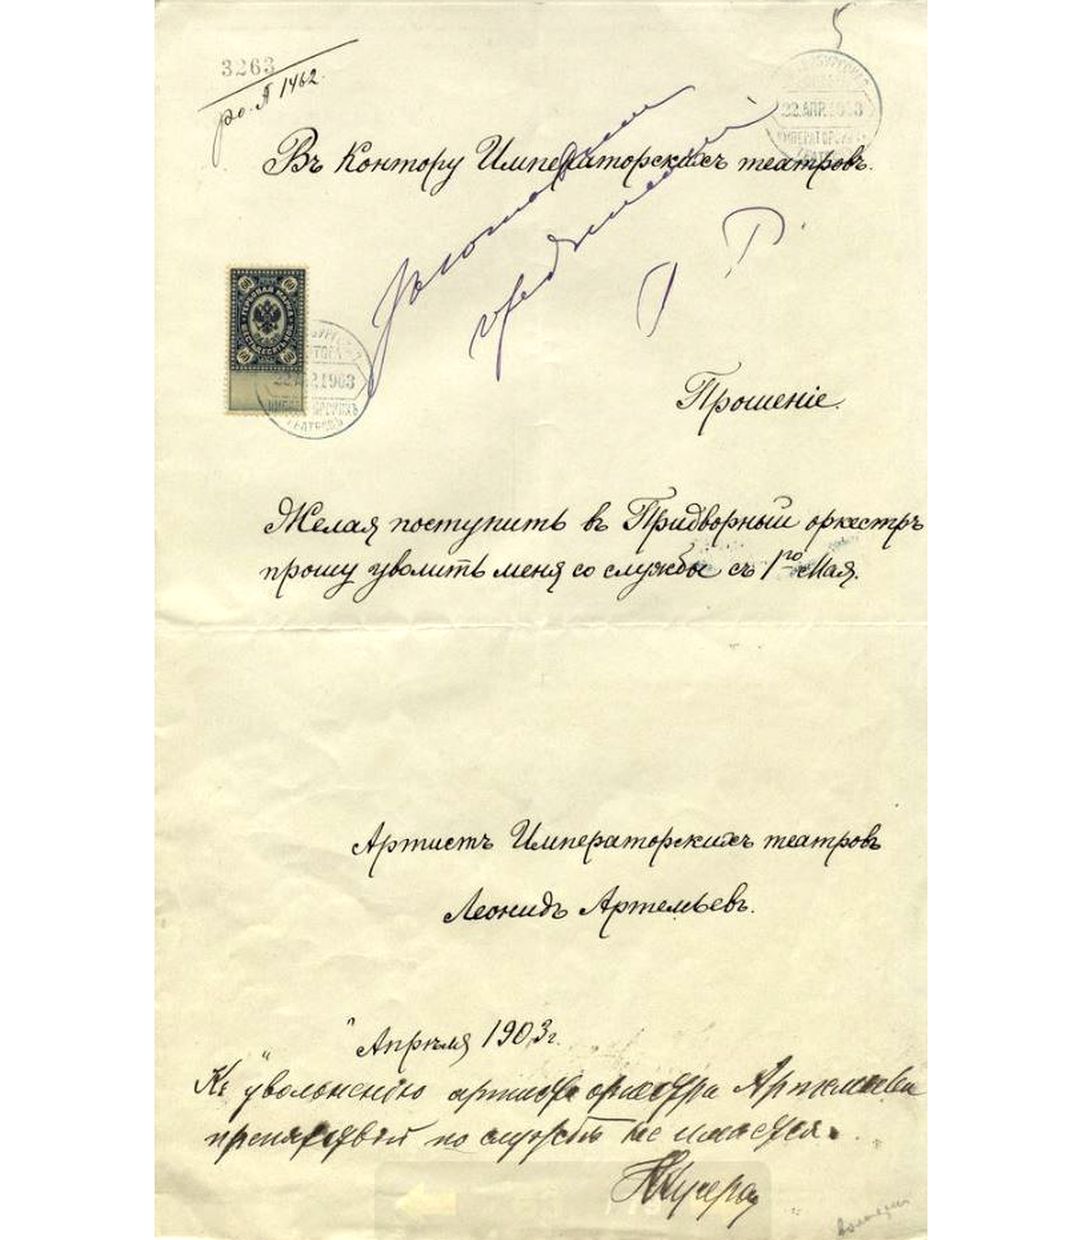 5
3263
ро. А 1462.
22 АПР. 1903
ИМПЕРАТОРСКИХЪ
ТЕАТРОВЪ
Въ Контору Императорскихъ театровъ.
60 60
ГЕРБОВАЯ МАРКА
60 60
22 АПР. 1903
ТЕАТРОВЪ
Прошеніе.
Желая поступить въ Придворный оркестръ
прошу уволить меня со службы съ 1го Мая.
Артистъ Императорскихъ театровъ
Леонидъ Артемьевъ.
" " Апрѣля 1903 г.
Къ увольненію артиста оркестра Артемьева
препятствій по службѣ не имѣется.
Кучера